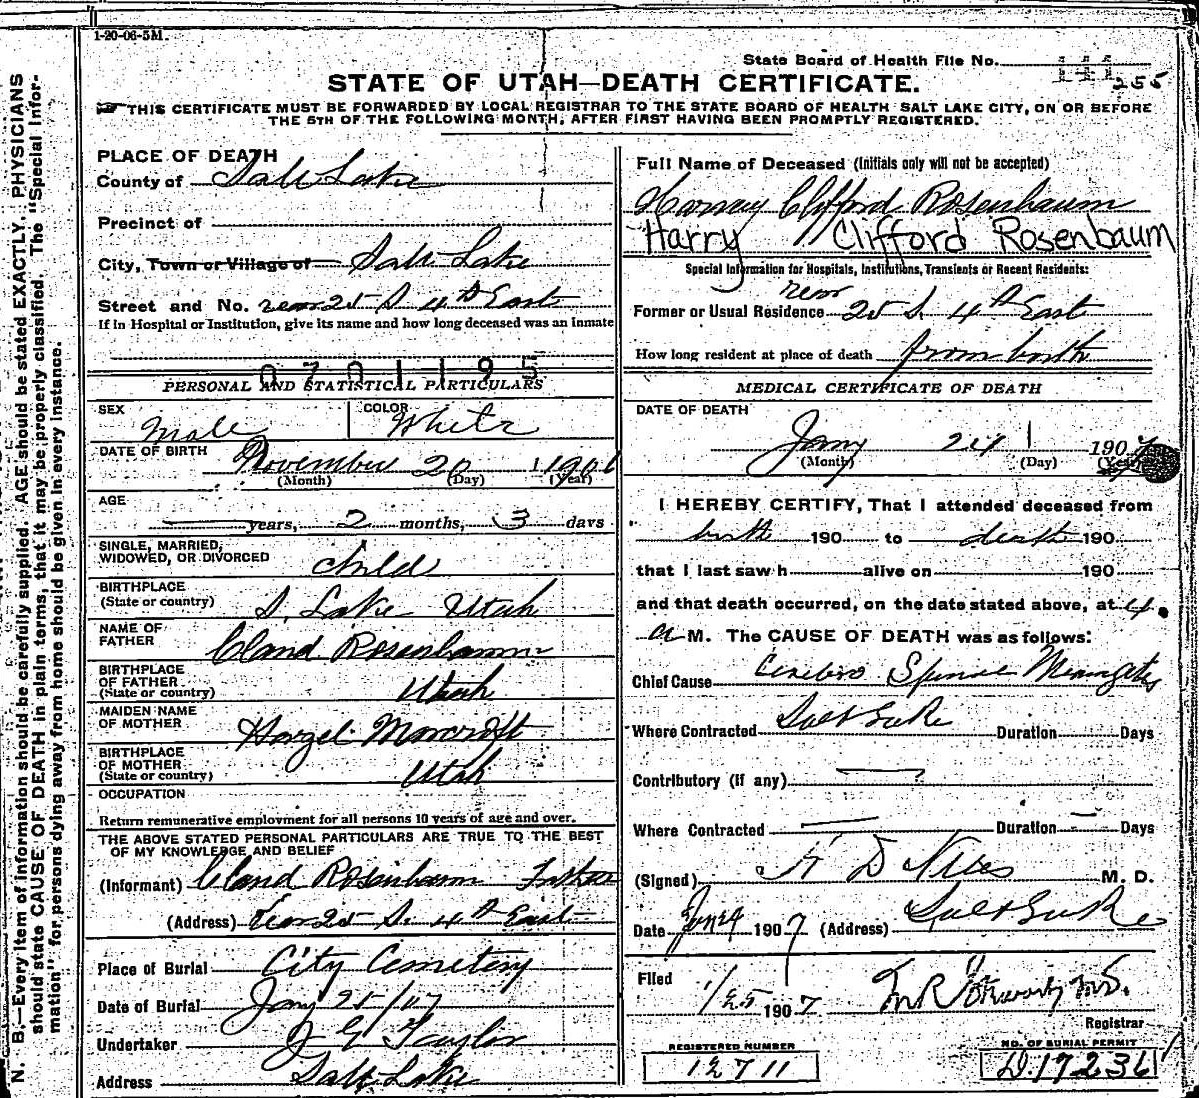 1-20-06-5M.
State Board of Health File No.
255
STATE OF UTAH—DEATH CERTIFICATE.
THIS CERTIFICATE MUST BE FORWARDED BY LOCAL REGISTRAR TO THE STATE BOARD OF HEALTH SALT LAKE CITY, ON OR BEFORE
THE 5TH OF THE FOLLOWING MONTH, AFTER FIRST HAVING BEEN PROMPTLY REGISTERED.
N. B.—Every item of information should be carefully supplied. AGE should be stated EXACTLY. PHYSICIANS
should state CAUSE OF DEATH in plain terms, that it may be properly classified. The "Special Infor-
mation" for persons dying away from home should be given in every instance.
PLACE OF DEATH
County of Salt Lake
Precinct of
City, Town or Village of Salt Lake
Street and No. rear 25 S. 4th East
If in Hospital or Institution, give its name and how long deceased was an inmate
0701195
PERSONAL AND STATISTICAL PARTICULARS
SEX Male COLOR White
DATE OF BIRTH November 20 1906
(Month) (Day) (Year)
AGE
years, 2 months, 3 days
SINGLE, MARRIED,
WIDOWED, OR DIVORCED child
BIRTHPLACE
(State or country) S. Lake Utah
NAME OF
FATHER Cland Rosenbaum
BIRTHPLACE
OF FATHER
(State or country) Utah
MAIDEN NAME
OF MOTHER Hazel Morcroft
BIRTHPLACE
OF MOTHER
(State or country) Utah
OCCUPATION
Return remunerative employment for all persons 10 years of age and over.
THE ABOVE STATED PERSONAL PARTICULARS ARE TRUE TO THE BEST
OF MY KNOWLEDGE AND BELIEF
(Informant) Cland Rosenbaum Father
(Address) rear 25 S. 4th East
Place of Burial City Cemetery
Date of Burial Jany 25/07
Undertaker J G Taylor
Address Salt Lake
Full Name of Deceased (Initials only will not be accepted)
Harvey Clifford Rosenbaum
Harry Clifford Rosenbaum
Special Information for Hospitals, Institutions, Transients or Recent Residents:
rear
Former or Usual Residence 25 S. 4th East
How long resident at place of death from birth
MEDICAL CERTIFICATE OF DEATH
DATE OF DEATH
Jany 24 1907
(Month) (Day) (Year)
I HEREBY CERTIFY, That I attended deceased from
birth 190 to death 190
that I last saw h alive on 190
and that death occurred, on the date stated above, at 4.
a M. The CAUSE OF DEATH was as follows:
Chief Cause Cerebro Spinal Meningitis
Where Contracted Salt Lake Duration Days
Contributory (if any) —
Where Contracted — Duration — Days
(Signed) D Niles M. D.
Date Jan 24 1907 (Address) Salt Lake
Filed
1/25 1907
Registrar
REGISTERED NUMBER
12711
NO. OF BURIAL PERMIT
D.17236